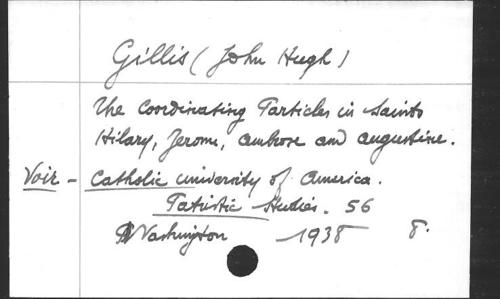 Gillis (John Hugh)
The Coordinating Particles in Saints
Hilary, Jerome, Ambrose and Augustine.
Voir - Catholic University of America.
Patristic Studies. 56
Washington 1938 8.